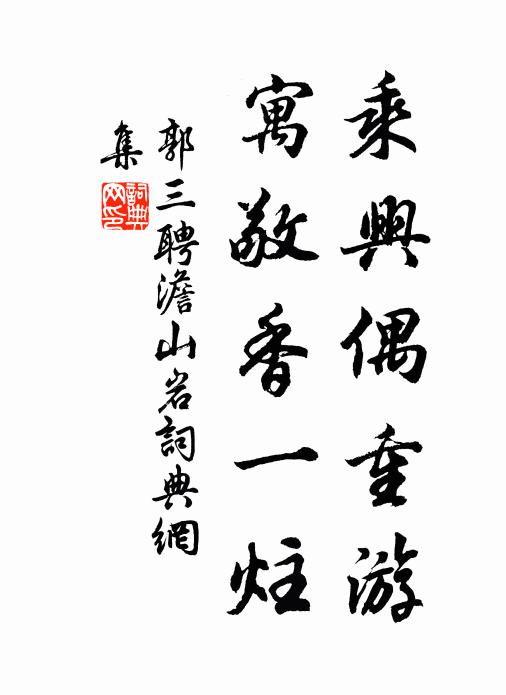 乘興偶重游
寓敬香一炷
郭三聘澹山岩詞典網
集
詞典
网印